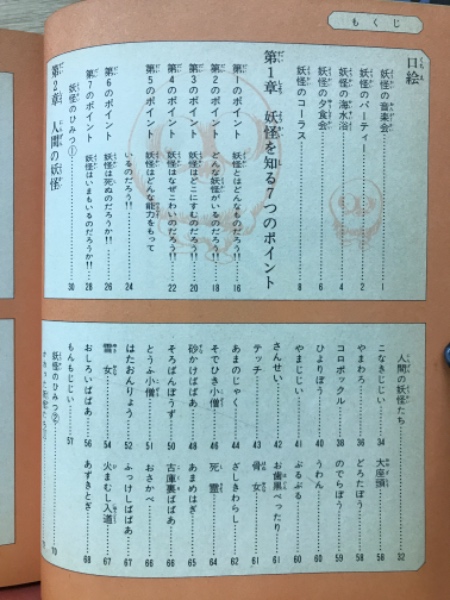 もくじ
口絵
妖怪の音楽会 1
妖怪のパーティ 2
妖怪の海水浴 4
妖怪の夕食会 6
妖怪のコーラス 8
第1章 妖怪を知る7つのポイント
第1のポイント 妖怪とはどんなものだろう!! 16
第2のポイント どんな妖怪がいるのだろう!! 18
第3のポイント 妖怪はどこにすむのだろう!! 20
第4のポイント 妖怪はなぜこわいのだろう!! 22
第5のポイント 妖怪はどんな能力をもって
いるのだろう!! 24
第6のポイント 妖怪は死ぬのだろうか!! 26
第7のポイント 妖怪はいまもいるのだろうか!! 28
妖怪のひみつ① 30
第2章 人間の妖怪
人間の妖怪たち 32
こなきじじい 34
やまわろ 36
コロポックル 38
ひょりぼう 40
やまじじい 41
さんせい 42
テッチ 43
あまのじゃく 44
そでひき小僧 46
砂かけばばあ 48
そろばんぼうず 50
とうふ小僧 51
はたおんりょう 52
雪女 54
おしろいばばあ 56
もんもじじい 57
大座頭 58
どろたぼう 58
のでらぼう
うわん 60
ぶるぶる 60
お歯黒べったり 61
骨女 61
ざしきわらし
死霊
あまめはぎ
古庫裏ばばあ 66
おさかべ 66
ふっけしばばあ 67
火まむし入道 67
あずきとぎ 68
妖怪のひみつ② 70